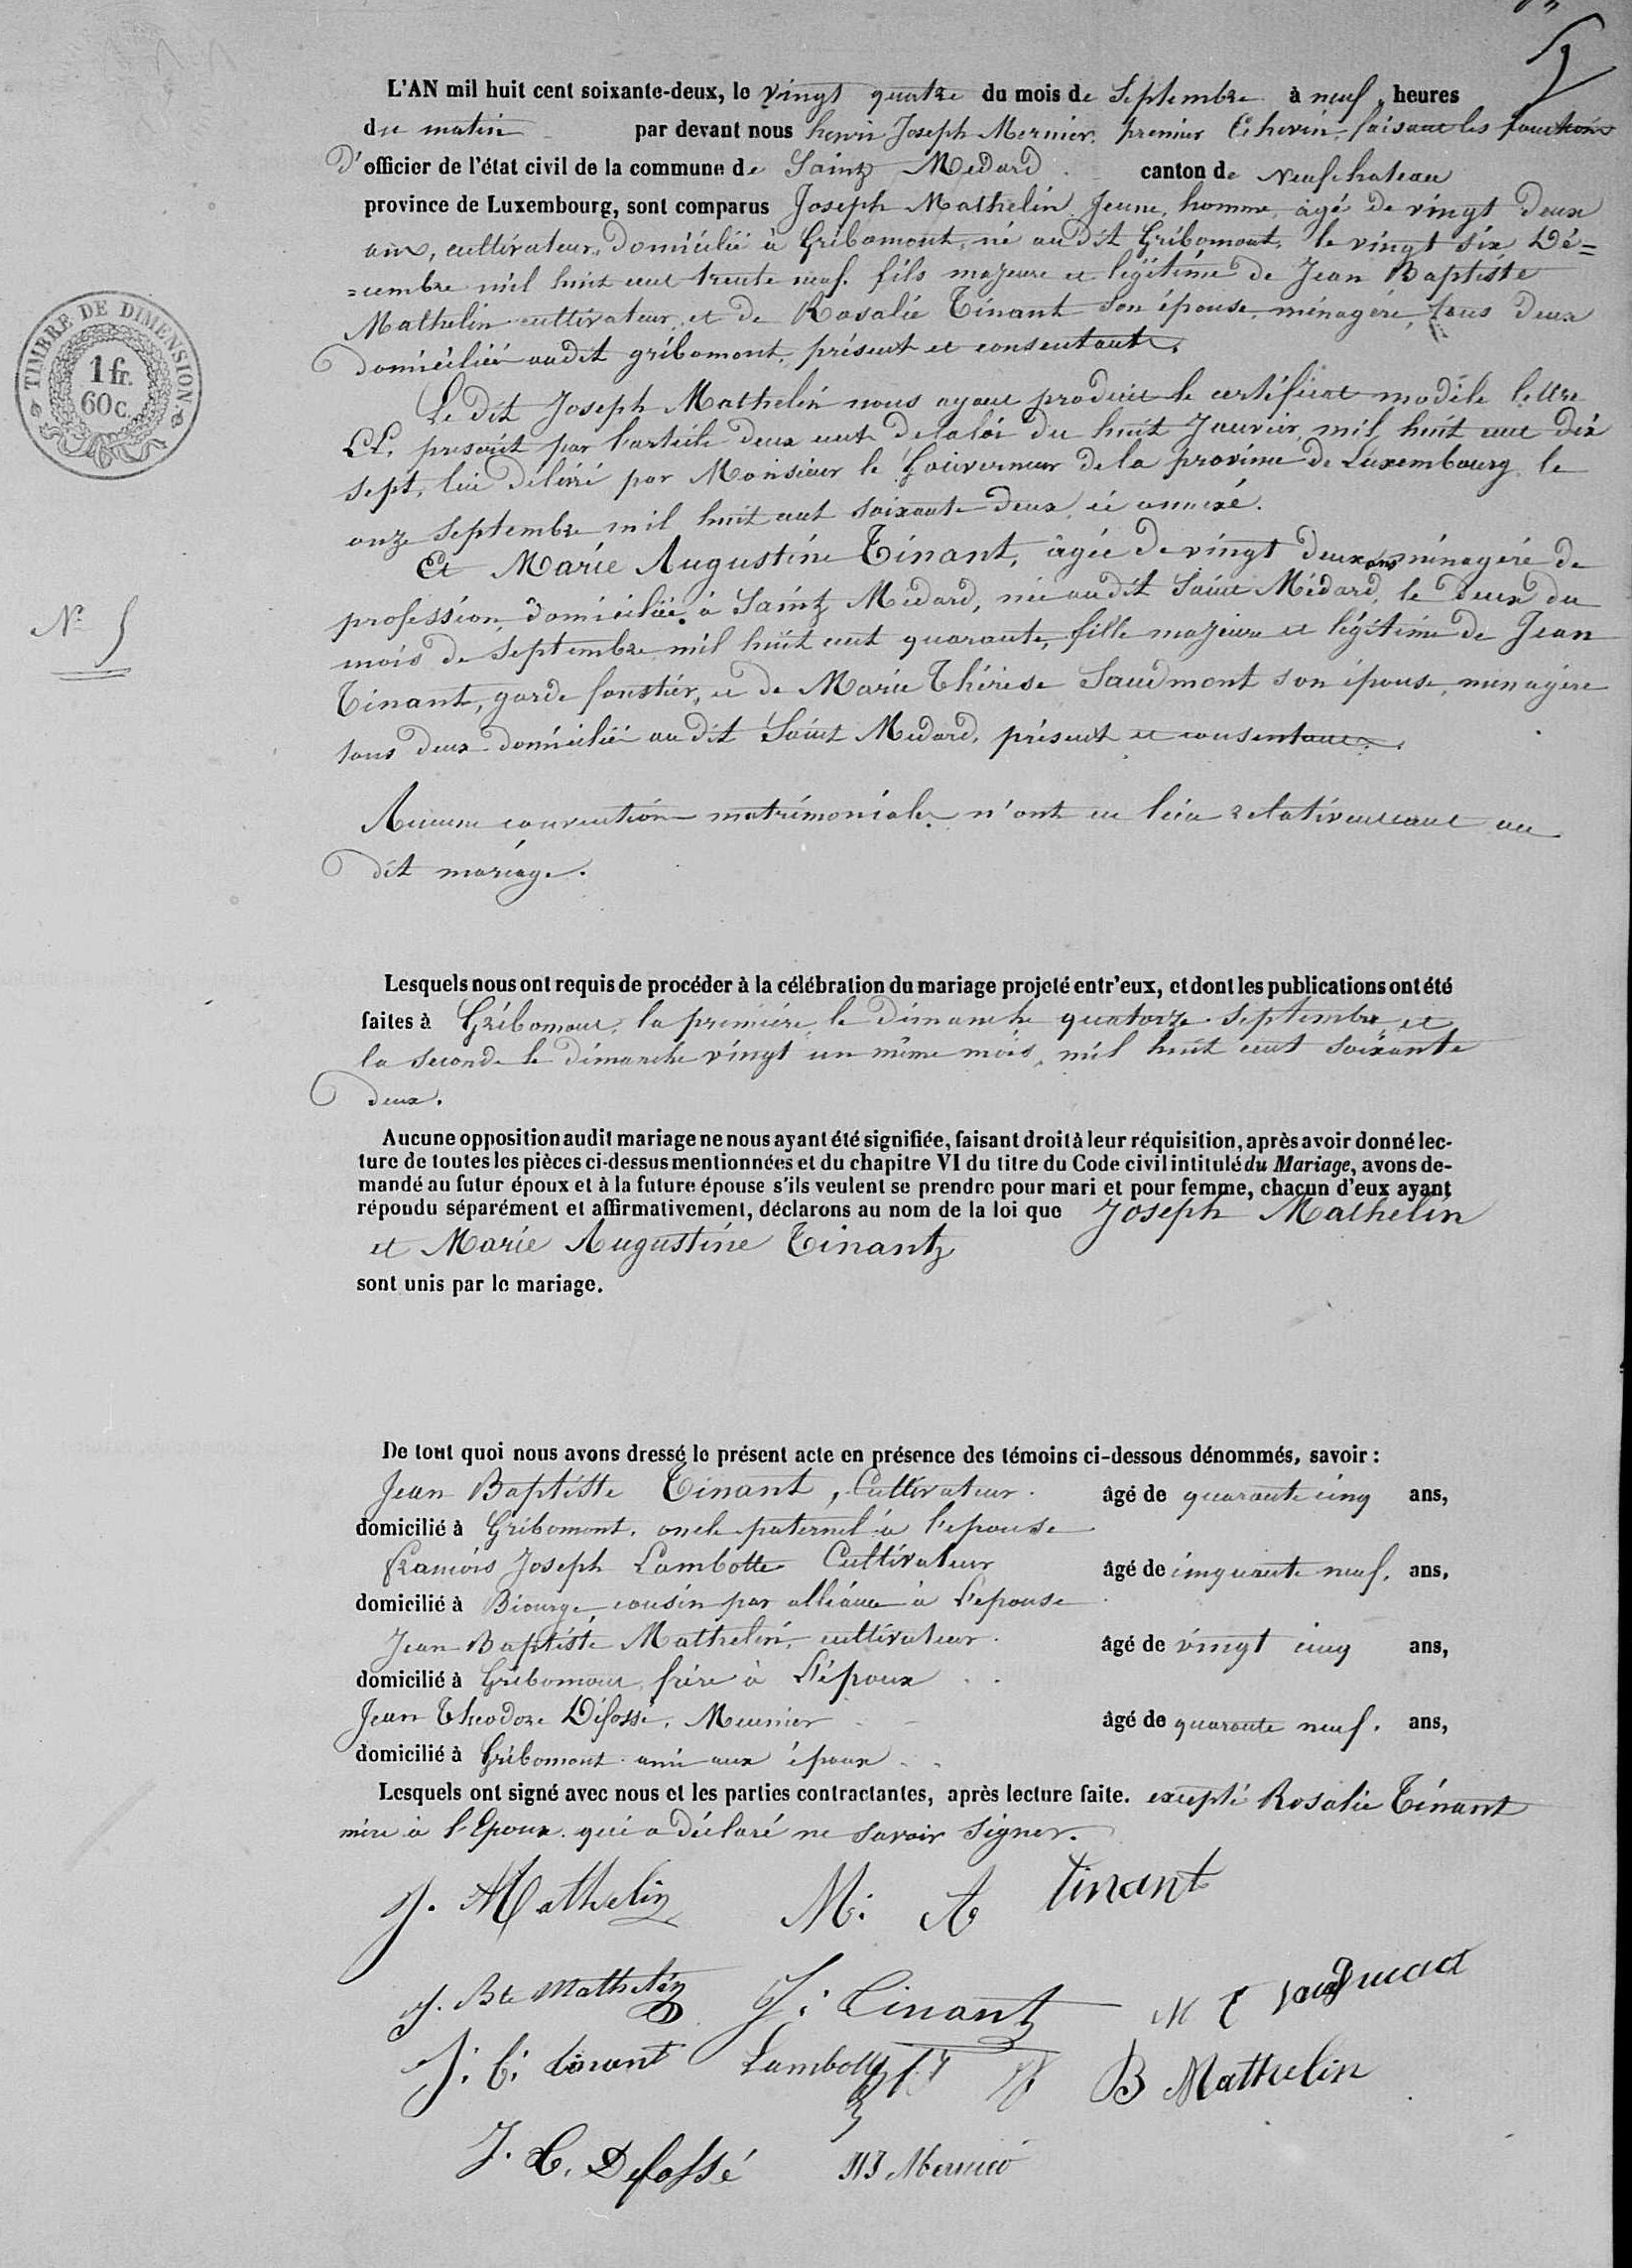 5
L'AN mil huit cent soixante-deux, le vingt quatre du mois de Septembre à neuf heures
du matin par devant nous henri Joseph Mernier, premier Echevin faisant les fonctions
D'officier de l'état civil de la commune de Saint Medard canton de Neufchateau
province de Luxembourg, sont comparus Joseph Mathelin Jeune homme, agé de vingt deux
ans, cultivateur, domicilié à Gribomont, né audit Gribomont, le vingt six Dé=
=cembre mil huit cent trente neuf. fils majeure et légitime de Jean Baptiste
Mathelin cultivateur, et de Rosalie Tinant son épouse, ménagère, tous deux
domicilié audit gribomont, présent et consentant.
Le dit Joseph Mathelin nous ayant produit le certificat modèle lettre
LL. prescrit par l'article deux cent de la loi du huit Janvier, mil huit cent dix
sept, lui délivré par Monsieur le Gouverneur de la province de Luxembourg le
onze Septembre mil huit cent soixante deux, ci annexé.
Et Marie Augustine Tinant, âgée de vingt deux ans ménagère de
profession, domiciliée à Saint Medard, née audit Saint Médard, le deux du
mois de Septembre mil huit cent quarante, fille majeure et légitime de Jean
Tinant, garde forestier, et de Marie Thérèse Saudmont son épouse, ménagère
tous deux domicilié audit Saint Medard, présent et consentant.
N° 5
Aucune convention matrimoniales n'ont eu lieu relativement au
dit mariage.
Lesquels nous ont requis de procéder à la célébration du mariage projeté entr'eux, et dont les publications ont été
faites à Gribomont, la première, le dimanche quatorze Septembre et
la seconde le dimanche vingt un même mois, mil huit cent soixante
deux.
Aucune opposition audit mariage ne nous ayant été signifiée, faisant droit à leur réquisition, après avoir donné lec-
ture de toutes les pièces ci-dessus mentionnées et du chapitre VI du titre du Code civil intitulé du Mariage, avons de-
mandé au futur époux et à la future épouse s'ils veulent se prendre pour mari et pour femme, chacun d'eux ayant
répondu séparément et affirmativement, déclarons au nom de la loi que Joseph Mathelin
et Marie Augustine Tinant
sont unis par le mariage.
De tout quoi nous avons dressé le présent acte en présence des témoins ci-dessous dénommés, savoir :
Jean Baptiste Tinant, Cultivateur. âgé de quarante cinq ans,
domicilié à Gribomont, oncle paternel à l'epouse
francois Joseph Lambotte Cultivateur âgé de cinquante neuf, ans,
domicilié à Biourge, cousin par alliance à l'epouse
Jean Baptiste Mathelin, cultivateur. âgé de vingt cinq ans,
domicilié à Gribomont, frère à l'époux
Jean Theodore Défossé, Meunier âgé de quarante neuf. ans,
domicilié à Gribomont ami aux époux
Lesquels ont signé avec nous et les parties contractantes, après lecture faite. excepté Rosalie Tinant
mère à l'Epoux qui a déclaré ne savoir signer.
J. Mathelin M: A Tinant
J. Bte Mathelin J: Tinant M T
J: B: Tinant Lambotte f J J. B Mathelin
J. T. Defossé HJ Mernier
TIMBRE DE DIMENSION
1 fr.
60 c.